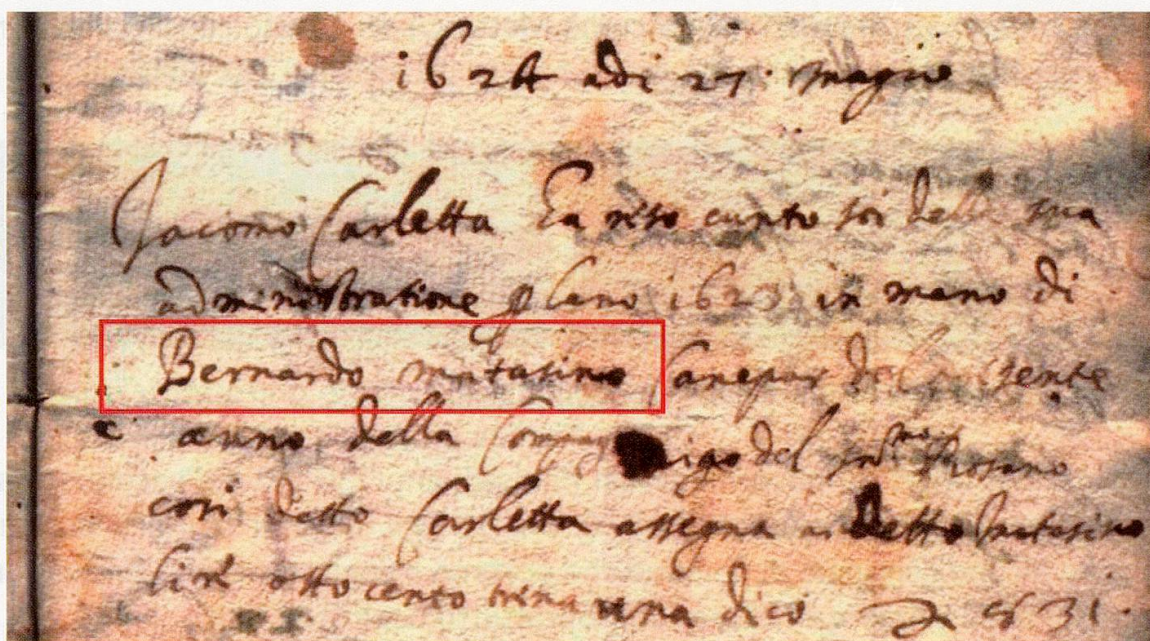 1624 adi 27 magio
Jacomo Carletta Ha reso cunto soi della sua
administratione ꝑ lano 1623 in mano di
Bernardo matasino Canepar del presente
anno della Compagnia del Rosario
cosi detto Carletta assegna al detto matasino
lire otto cento trenta una dico 831